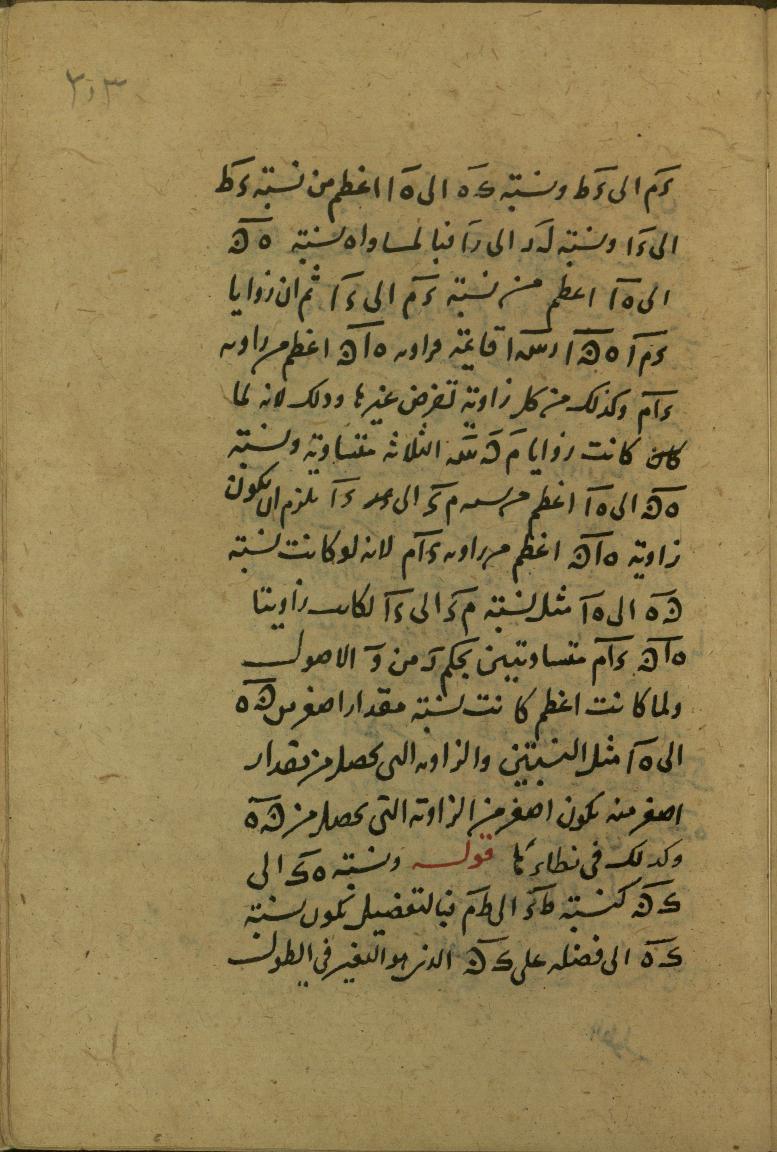 ٣٠٣
ءم الى ءط ونسبته ك ه الى ه ا اعظم من نسبته ءط
الى ءا ونسبته لد الى را فبالمساواه نسبته ه ں
الى ه ا اعظم من نسبته ءم الى ءا ثم ان زوايا
ءم ا ه ں ا رسه ا قايمة فزاويه ه ا ں اعظم من زاويه
ءام وكذلك من كل زاوية تفرض غيرها وذلك لانه لما
كانت زوايا م ں سه الثلاثه متساوية ونسبته
ه ں الى ه ا اعظم من نسبه م ء الى ءا يلزم ان يكون
زاوية ه ا ں اعظم من زاويه ءام لانه لو كانت نسبته
ں ه الى ه ا مثل نسبته م ء الى ءا لكانت زاويتا
ه ا ں ءام متساويتين بحكم د من و الاصول
ولما كانت اعظم كانت نسبته مقدار اصغر من ں ه
الى ه ا مثل النسبتين والزاويه التى تحصل من مقدار
اصغر منه يكون اصغر من الزاوية التى تحصل من ں ه
وكذلك فى نظائرها قوله ونسبته ه ك الى
ك ں كنسبته ط ء الى ط م فبالتفضيل يكون نسبته
ك ه الى فضله على ك ں الذى هو التغير فى الطول